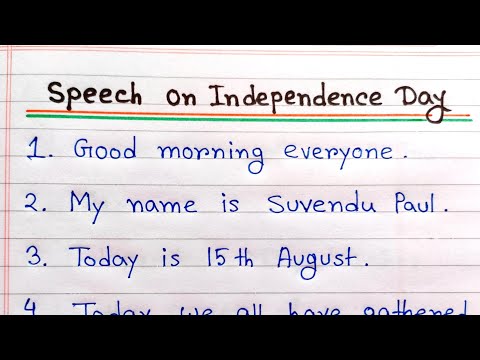 Speech on Independence Day
1. Good morning everyone.
2. My name is Suvendu Paul.
3. Today is 15th August.
4. Today we all have gathered